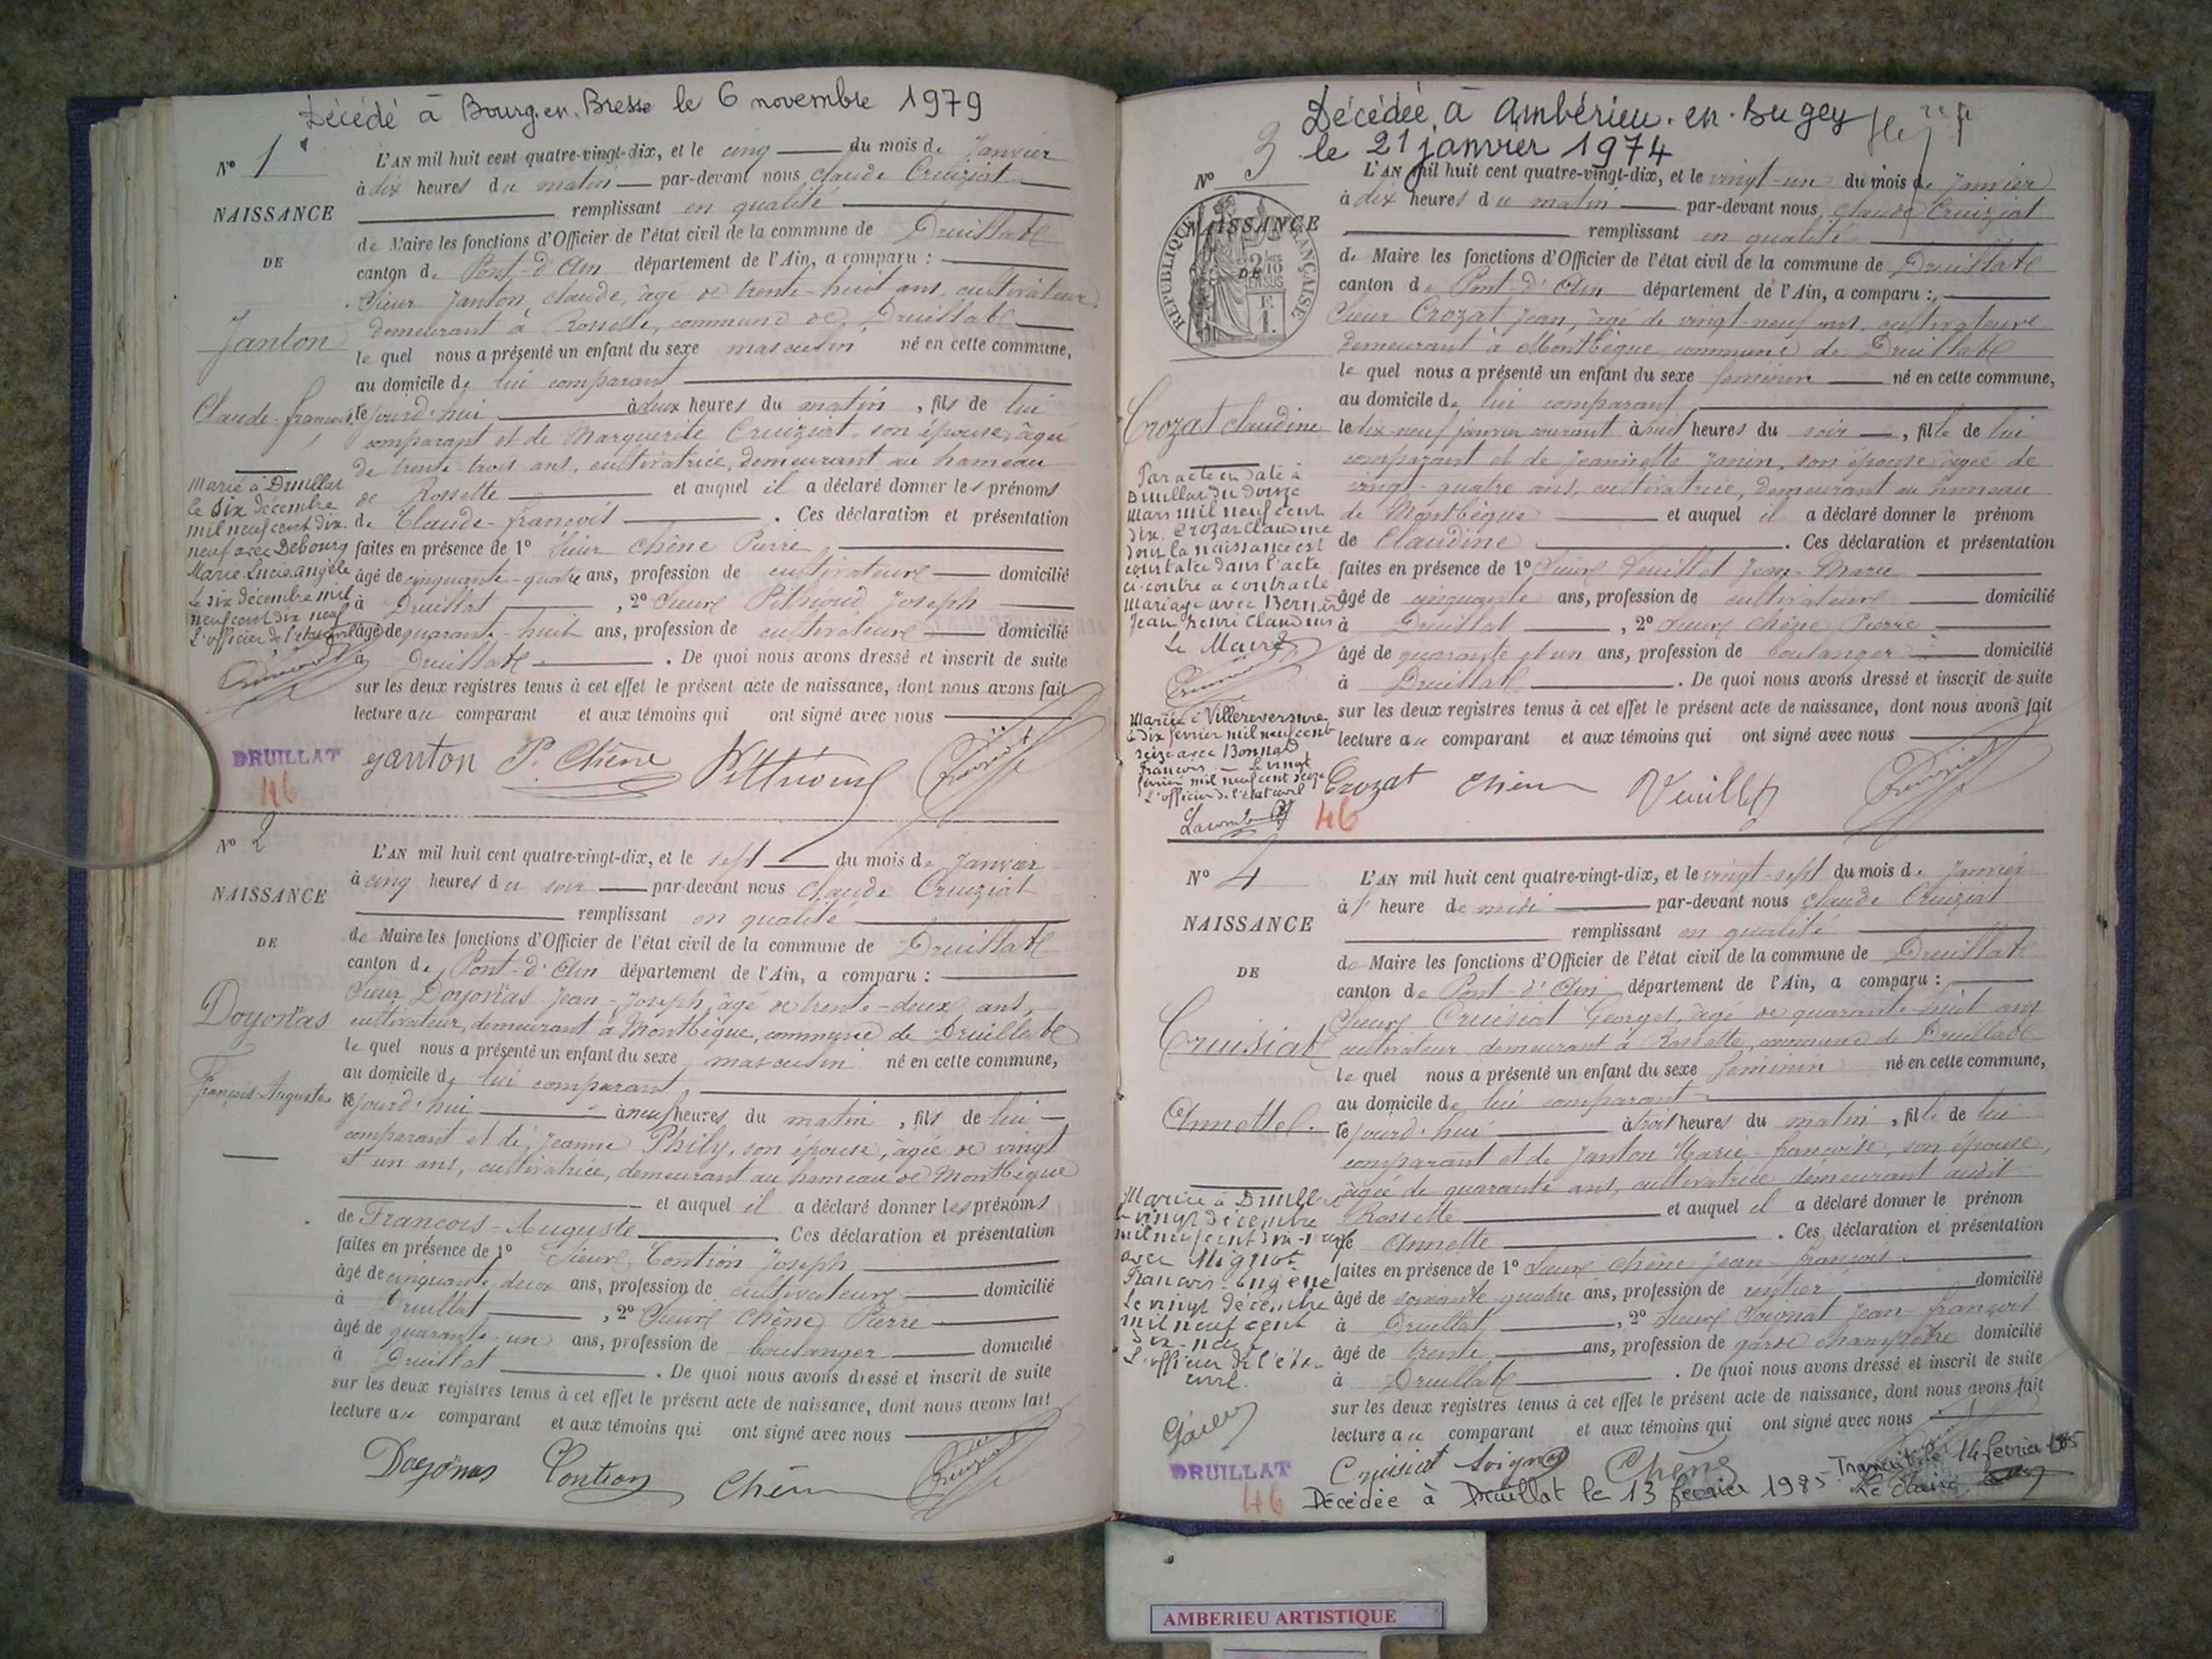 Décédé à Bourg.en.Bresse le 6 novembre 1979
N° 1
NAISSANCE
DE
Janton
Claude-François
L'AN mil huit cent quatre-vingt-dix, et le cinq du mois de Janvier
à dix heures du matin par-devant nous Claude Cruiziat
remplissant en qualité
de Maire les fonctions d'Officier de l'état civil de la commune de Druillat
canton de Pont-d'Ain département de l'Ain, a comparu :
Sieur Janton, Claude, âgé de trente-huit ans, cultivateur
demeurant à Rossette, commune de Druillat
le quel nous a présenté un enfant du sexe masculin né en cette commune,
au domicile de lui comparant
ce jourd'hui à deux heures du matin, fils de lui
comparant et de Marguerite Cruiziat, son épouse, âgée
de trente-trois ans, cultivatrice, demeurant au hameau
de Rossette et auquel il a déclaré donner les prénoms
de Claude-François. Ces déclaration et présentation
faites en présence de 1° Sieur Chêne Pierre
âgé de cinquante-quatre ans, profession de cultivateur domicilié
à Druillat, 2° Sieur Pithioud Joseph
âgé de quarante-huit ans, profession de cultivateur domicilié
à Druillat. De quoi nous avons dressé et inscrit de suite
sur les deux registres tenus à cet effet le présent acte de naissance, dont nous avons fait
lecture au comparant et aux témoins qui ont signé avec nous
Marié à Druillat
le six décembre
mil neuf cent dix.
neuf avec Debourg
Marie.Lucie.Angèle
Le six décembre mil
neuf cent dix neuf
L'officier de l'état civil
DRUILLAT
46
Janton P. Chêne Pithioud Cruiziat
N° 2
NAISSANCE
DE
Doyonas
François-Auguste
L'AN mil huit cent quatre-vingt-dix, et le sept du mois de Janvier
à cinq heures du soir par-devant nous Claude Cruiziat
remplissant en qualité
de Maire les fonctions d'Officier de l'état civil de la commune de Druillat
canton de Pont-d'Ain département de l'Ain, a comparu :
Sieur Doyonas Jean-Joseph, âgé de trente-deux ans,
cultivateur, demeurant à Montbègue, commune de Druillat
le quel nous a présenté un enfant du sexe masculin né en cette commune,
au domicile de lui comparant
ce jourd'hui à neuf heures du matin, fils de lui
comparant et de Jeanne Phily, son épouse, âgée de vingt
et un ans, cultivatrice, demeurant au hameau de Montbègue
et auquel il a déclaré donner les prénoms
de François-Auguste. Ces déclaration et présentation
faites en présence de 1° Sieur Contion Joseph
âgé de cinquante-deux ans, profession de cultivateur domicilié
à Druillat, 2° Sieur Chêne Pierre
âgé de quarante-un ans, profession de boulanger domicilié
à Druillat. De quoi nous avons dressé et inscrit de suite
sur les deux registres tenus à cet effet le présent acte de naissance, dont nous avons fait
lecture au comparant et aux témoins qui ont signé avec nous
Doyonas Contion Chêne Cruiziat
Décédée à Ambérieu.en.Bugey
le 21 janvier 1974
N° 3
NAISSANCE
DE
RÉPUBLIQUE FRANÇAISE
Crozat Claudine
L'AN mil huit cent quatre-vingt-dix, et le vingt-un du mois de Janvier
à dix heures du matin par-devant nous Claude Cruiziat
remplissant en qualité
de Maire les fonctions d'Officier de l'état civil de la commune de Druillat
canton de Pont-d'Ain département de l'Ain, a comparu :
Sieur Crozat Jean, âgé de vingt-neuf ans, cultivateur
demeurant à Montbègue, commune de Druillat
le quel nous a présenté un enfant du sexe féminin né en cette commune,
au domicile de lui comparant
le dix-neuf janvier courant à huit heures du soir, fille de lui
comparant et de Jeannette Janin, son épouse âgée de
vingt-quatre ans, cultivatrice, demeurant au hameau
de Montbègue et auquel il a déclaré donner le prénom
de Claudine. Ces déclaration et présentation
faites en présence de 1° Sieur Veuillet Jean-Marie
âgé de cinquante ans, profession de cultivateur domicilié
à Druillat, 2° Sieur Chêne Pierre
âgé de quarante et un ans, profession de boulanger domicilié
à Druillat. De quoi nous avons dressé et inscrit de suite
sur les deux registres tenus à cet effet le présent acte de naissance, dont nous avons fait
lecture au comparant et aux témoins qui ont signé avec nous
Par acte en date à
Druillat du douze
Mars mil neuf cent
dix. Crozat Claudine
dont la naissance est
constatée dans l'acte
ci-contre a contracté
Mariage avec Bernier
Jean Henri Claudius
Le Maire
Mariée à Villereversure
le dix février mil neuf cent
seize avec Bonnard
François. Le vingt
février mil neuf cent seize
L'officier de l'état civil
Crozat Chêne Veuillet Cruiziat
46
N° 4
NAISSANCE
DE
Cruisiat
Annette.
L'AN mil huit cent quatre-vingt-dix, et le vingt-sept du mois de Janvier
à l' heure de midi par-devant nous Claude Cruiziat
remplissant en qualité
de Maire les fonctions d'Officier de l'état civil de la commune de Druillat
canton de Pont-d'Ain département de l'Ain, a comparu :
Sieur Cruisiat Georges, âgé de quarante-huit ans
cultivateur demeurant à Rossette, commune de Druillat
le quel nous a présenté un enfant du sexe féminin né en cette commune,
au domicile de lui comparant
ce jourd'hui à trois heures du matin, fille de lui
comparant et de Janton Marie-Françoise, son épouse,
âgée de quarante ans, cultivatrice demeurant audit
Rossette et auquel il a déclaré donner le prénom
de Annette. Ces déclaration et présentation
faites en présence de 1° Sieur Chêne Jean-François
âgé de soixante quatre ans, profession de rentier domicilié
à Druillat, 2° Sieur Soignat Jean-François
âgé de trente ans, profession de garde champêtre domicilié
à Druillat. De quoi nous avons dressé et inscrit de suite
sur les deux registres tenus à cet effet le présent acte de naissance, dont nous avons fait
lecture au comparant et aux témoins qui ont signé avec nous
Mariée à Druillat
le vingt décembre
mil neuf cent dix-neuf
avec Mignot
François-Eugène
Le vingt décembre
mil neuf cent
dix-neuf
L'officier de l'état
civil.
DRUILLAT
46
Cruisiat Soignat Chêne
Décédée à Druillat le 13 février 1985
Transcrit le 14 février 1985
Le Maire
AMBERIEU ARTISTIQUE